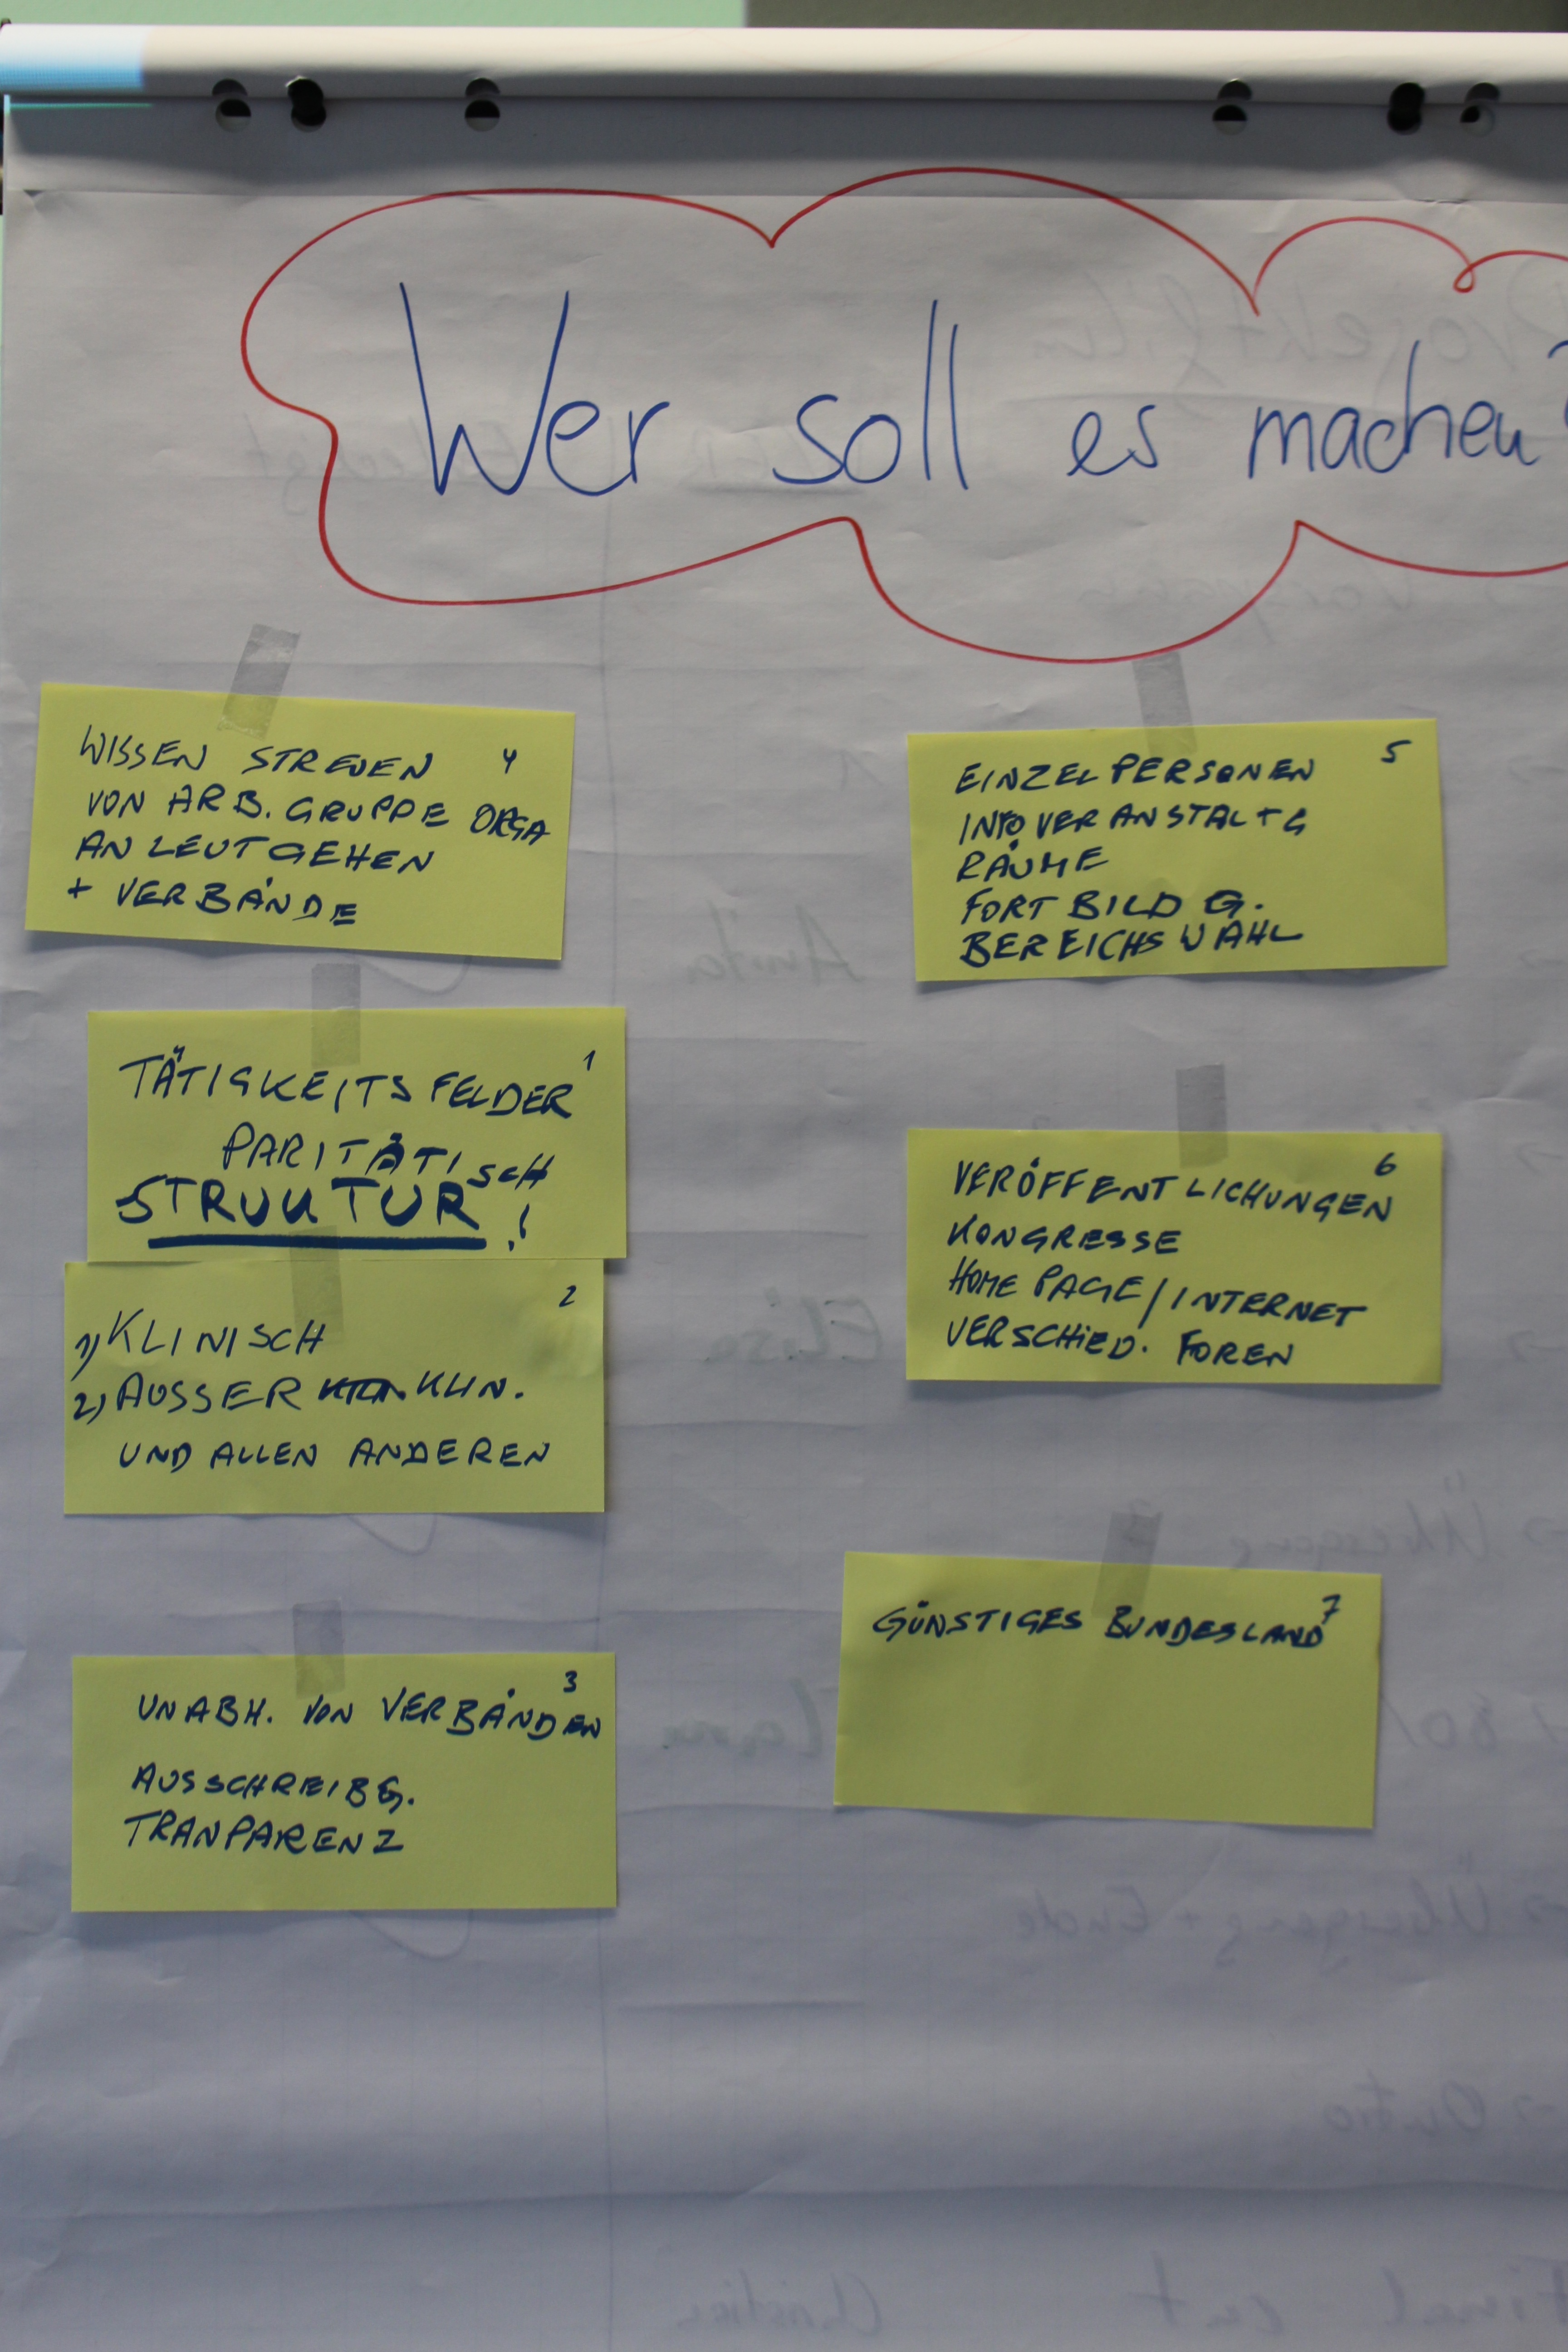 Wer soll es machen?
WISSEN STREUEN 4
VON ARB. GRUPPE ORGA
AN LEUT GEHEN
+ VERBÄNDE
TÄTIGKEITSFELDER 1
PARITÄTISCH
STRUKTUR!
2
1) KLINISCH
2) AUSSER KLIN.
UND ALLEN ANDEREN
3
UNABH. VON VERBÄNDEN
AUSSCHREIBG.
TRANPARENZ
EINZELPERSONEN 5
INFOVERANSTALTG
RÄUME
FORTBILDG.
BEREICHSWAHL
6
VERÖFFENTLICHUNGEN
KONGRESSE
HOMEPAGE/INTERNET
VERSCHIED. FOREN
GÜNSTIGES BUNDESLAND 7